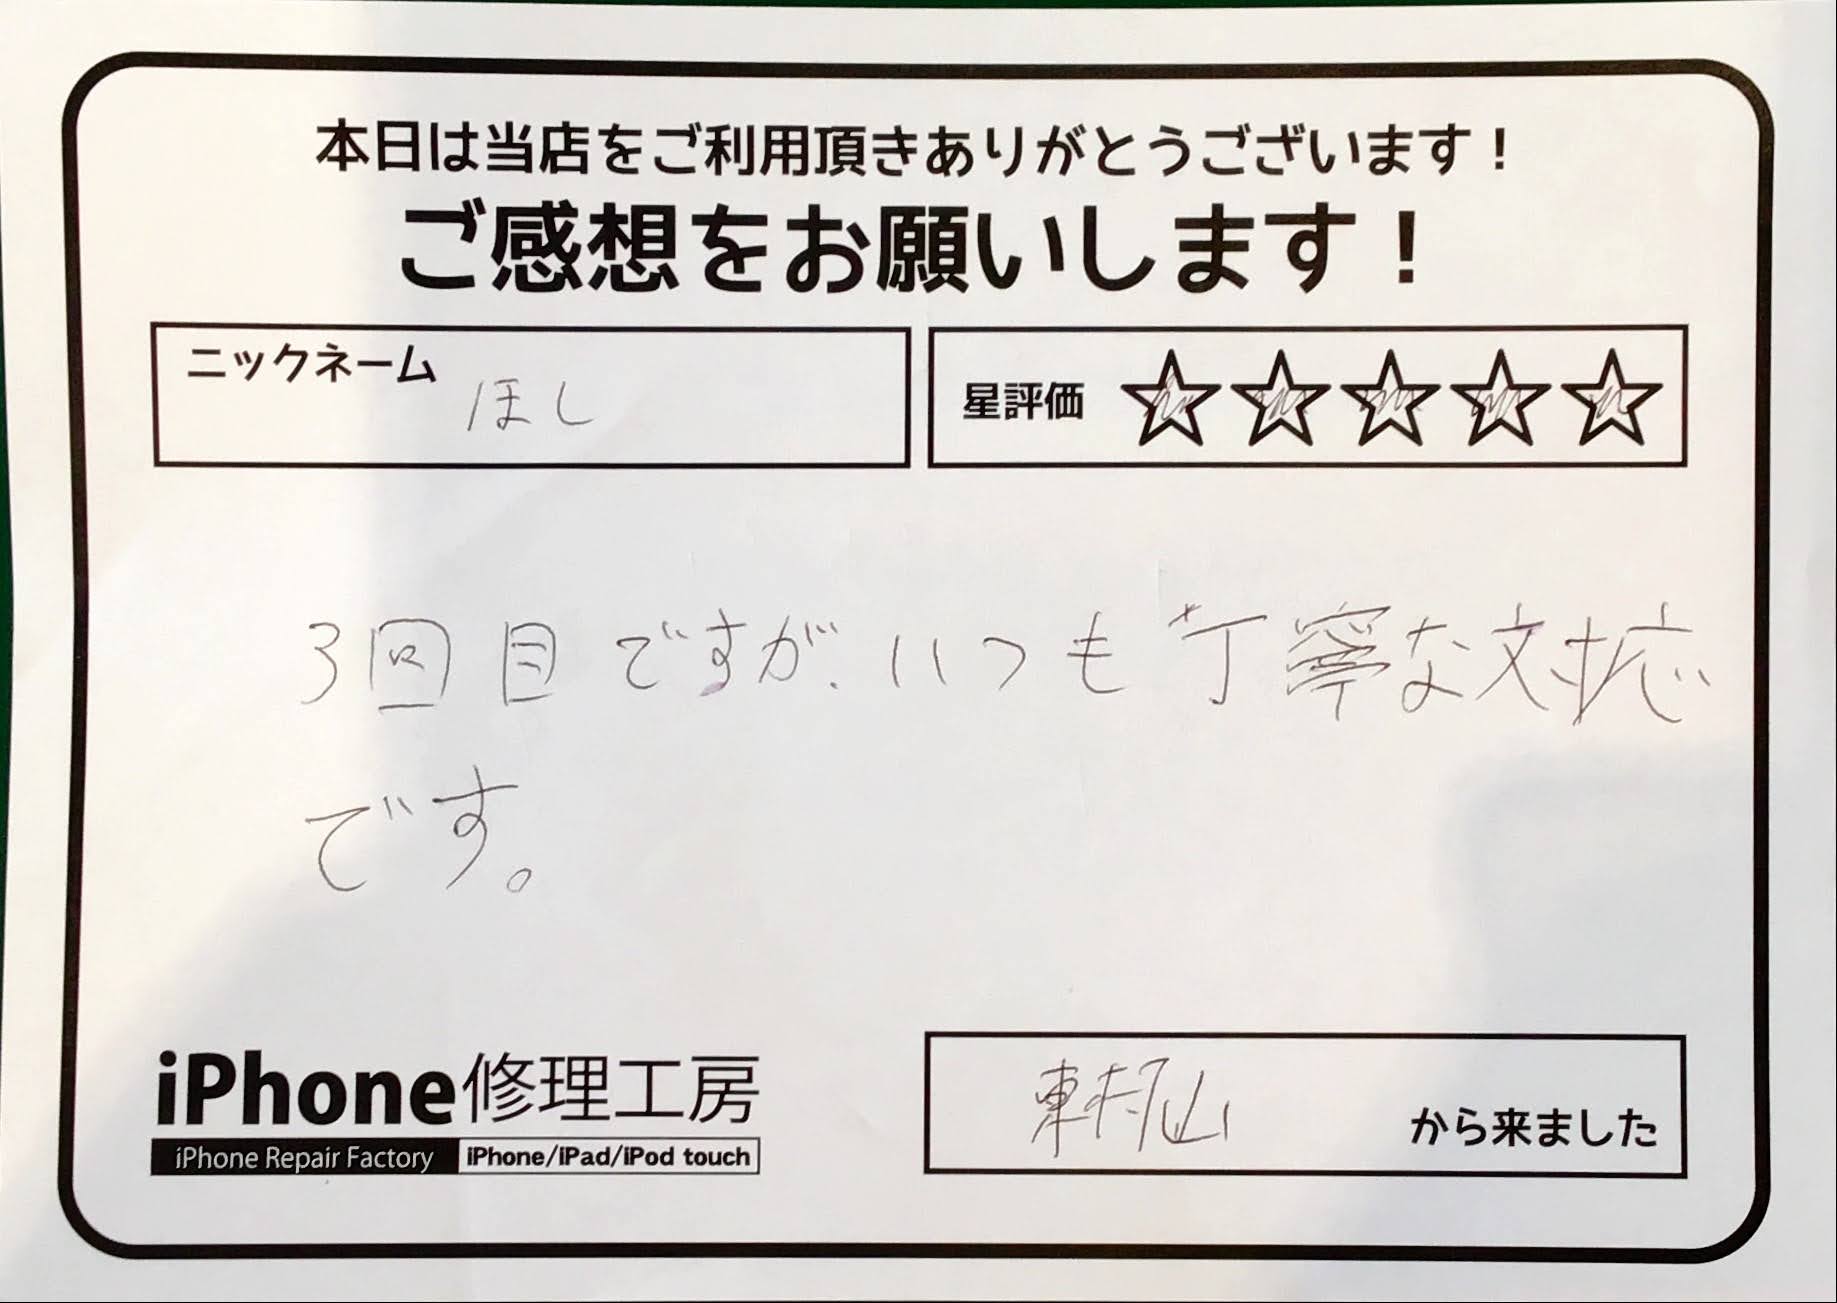 本日は当店をご利用頂きありがとうございます！
ご感想をお願いします！
ニックネーム ほし
星評価 ☆☆☆☆☆
3回目ですが、いつも丁寧な対応
です。
iPhone修理工房
iPhone Repair Factory iPhone/iPad/iPod touch
東村山 から来ました